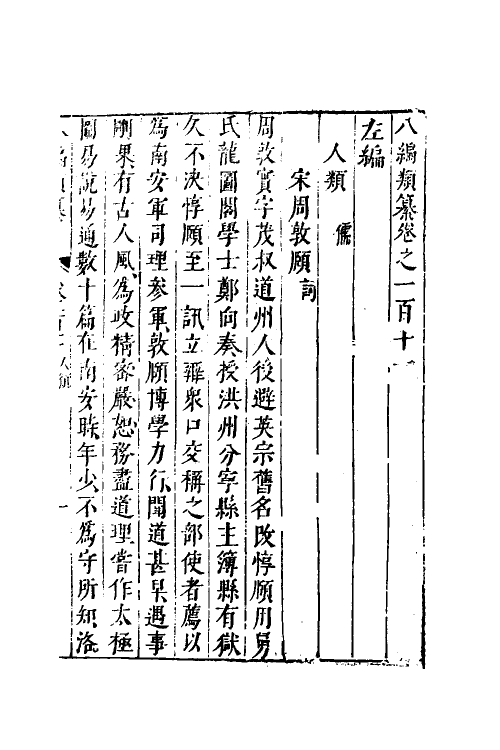 八編類纂卷之一百十一
左編
人類　儒
宋周敦頤
周敦實字茂叔道州人後避英宗舊名改惇頤用舅
氏龍圖閣學士鄭向奏授洪州分寧縣主簿縣有獄
久不決惇頤至一訊立辨衆口交稱之部使者薦以
爲南安軍司理參軍敦頤博學力行聞道甚早遇事
剛果有古人風爲政精密嚴恕務盡道理嘗作太極
圖易說易通數十篇在南安時年少不爲守所知洛